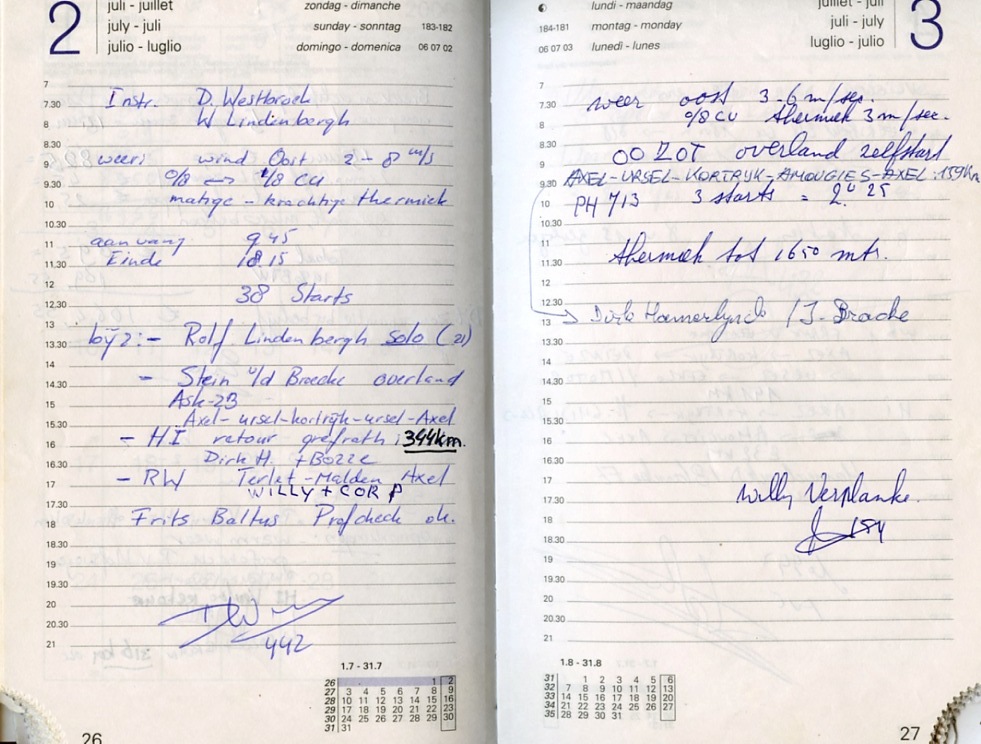 2
juli - juillet
july - juli
julio - luglio
zondag - dimanche
sunday - sonntag 183-182
domingo - domenica 06 07 02
7
7.30 Instr. D. Westbroek
8 W Lindenbergh
8.30
9 weer: wind Oost 2 - 8 m/s
9.30 0/8 1/8 CU
10 matige - krachtige thermiek
10.30
11 aanvang 9.45
11.30 Einde 18.15
12
12.30 38 Starts
13
13.30 bijz:- Rolf Lindenbergh solo (21)
14
14.30 - Stein v/d Broecke overland
15 Ask-23
15.30 Axel-ursel-kortrijk-ursel-Axel
16 - HI retour grefrath: 344km.
16.30 Dirk H. +
17 - RW Terlet-Malden Axel
17.30 WILLY + COR P
18 Frits Baltus Profcheck ok.
18.30
19
19.30
20
20.30
21 442
1.7 - 31.7
26 1 2
27 3 4 5 6 7 8 9
28 10 11 12 13 14 15 16
29 17 18 19 20 21 22 23
30 24 25 26 27 28 29 30
31 31
26
lundi - maandag
184-181 montag - monday
06 07 03 lunedi - lunes
juillet - juli
juli - july
luglio - julio
3
7
7.30 weer oost 3-6 m/sec.
8 0/8 CU thermiek 3 m/sec.
8.30
9 OO ZOT overland zelfstart
9.30 AXEL-URSEL-KORTRYK-AMOUGIES-AXEL:
10 PH 713 3 starts = 2.u 25
10.30
11
11.30 thermiek tot 1650 mtr.
12
12.30
13 Dirk Hamerlynck / J. Brache
13.30
14
14.30
15
15.30
16
16.30
17
17.30 Willy Verplanke.
18
18.30 184
19
19.30
20
20.30
21
1.8 - 31.8
31 1 2 3 4 5 6
32 7 8 9 10 11 12 13
33 14 15 16 17 18 19 20
34 21 22 23 24 25 26 27
35 28 29 30 31
27